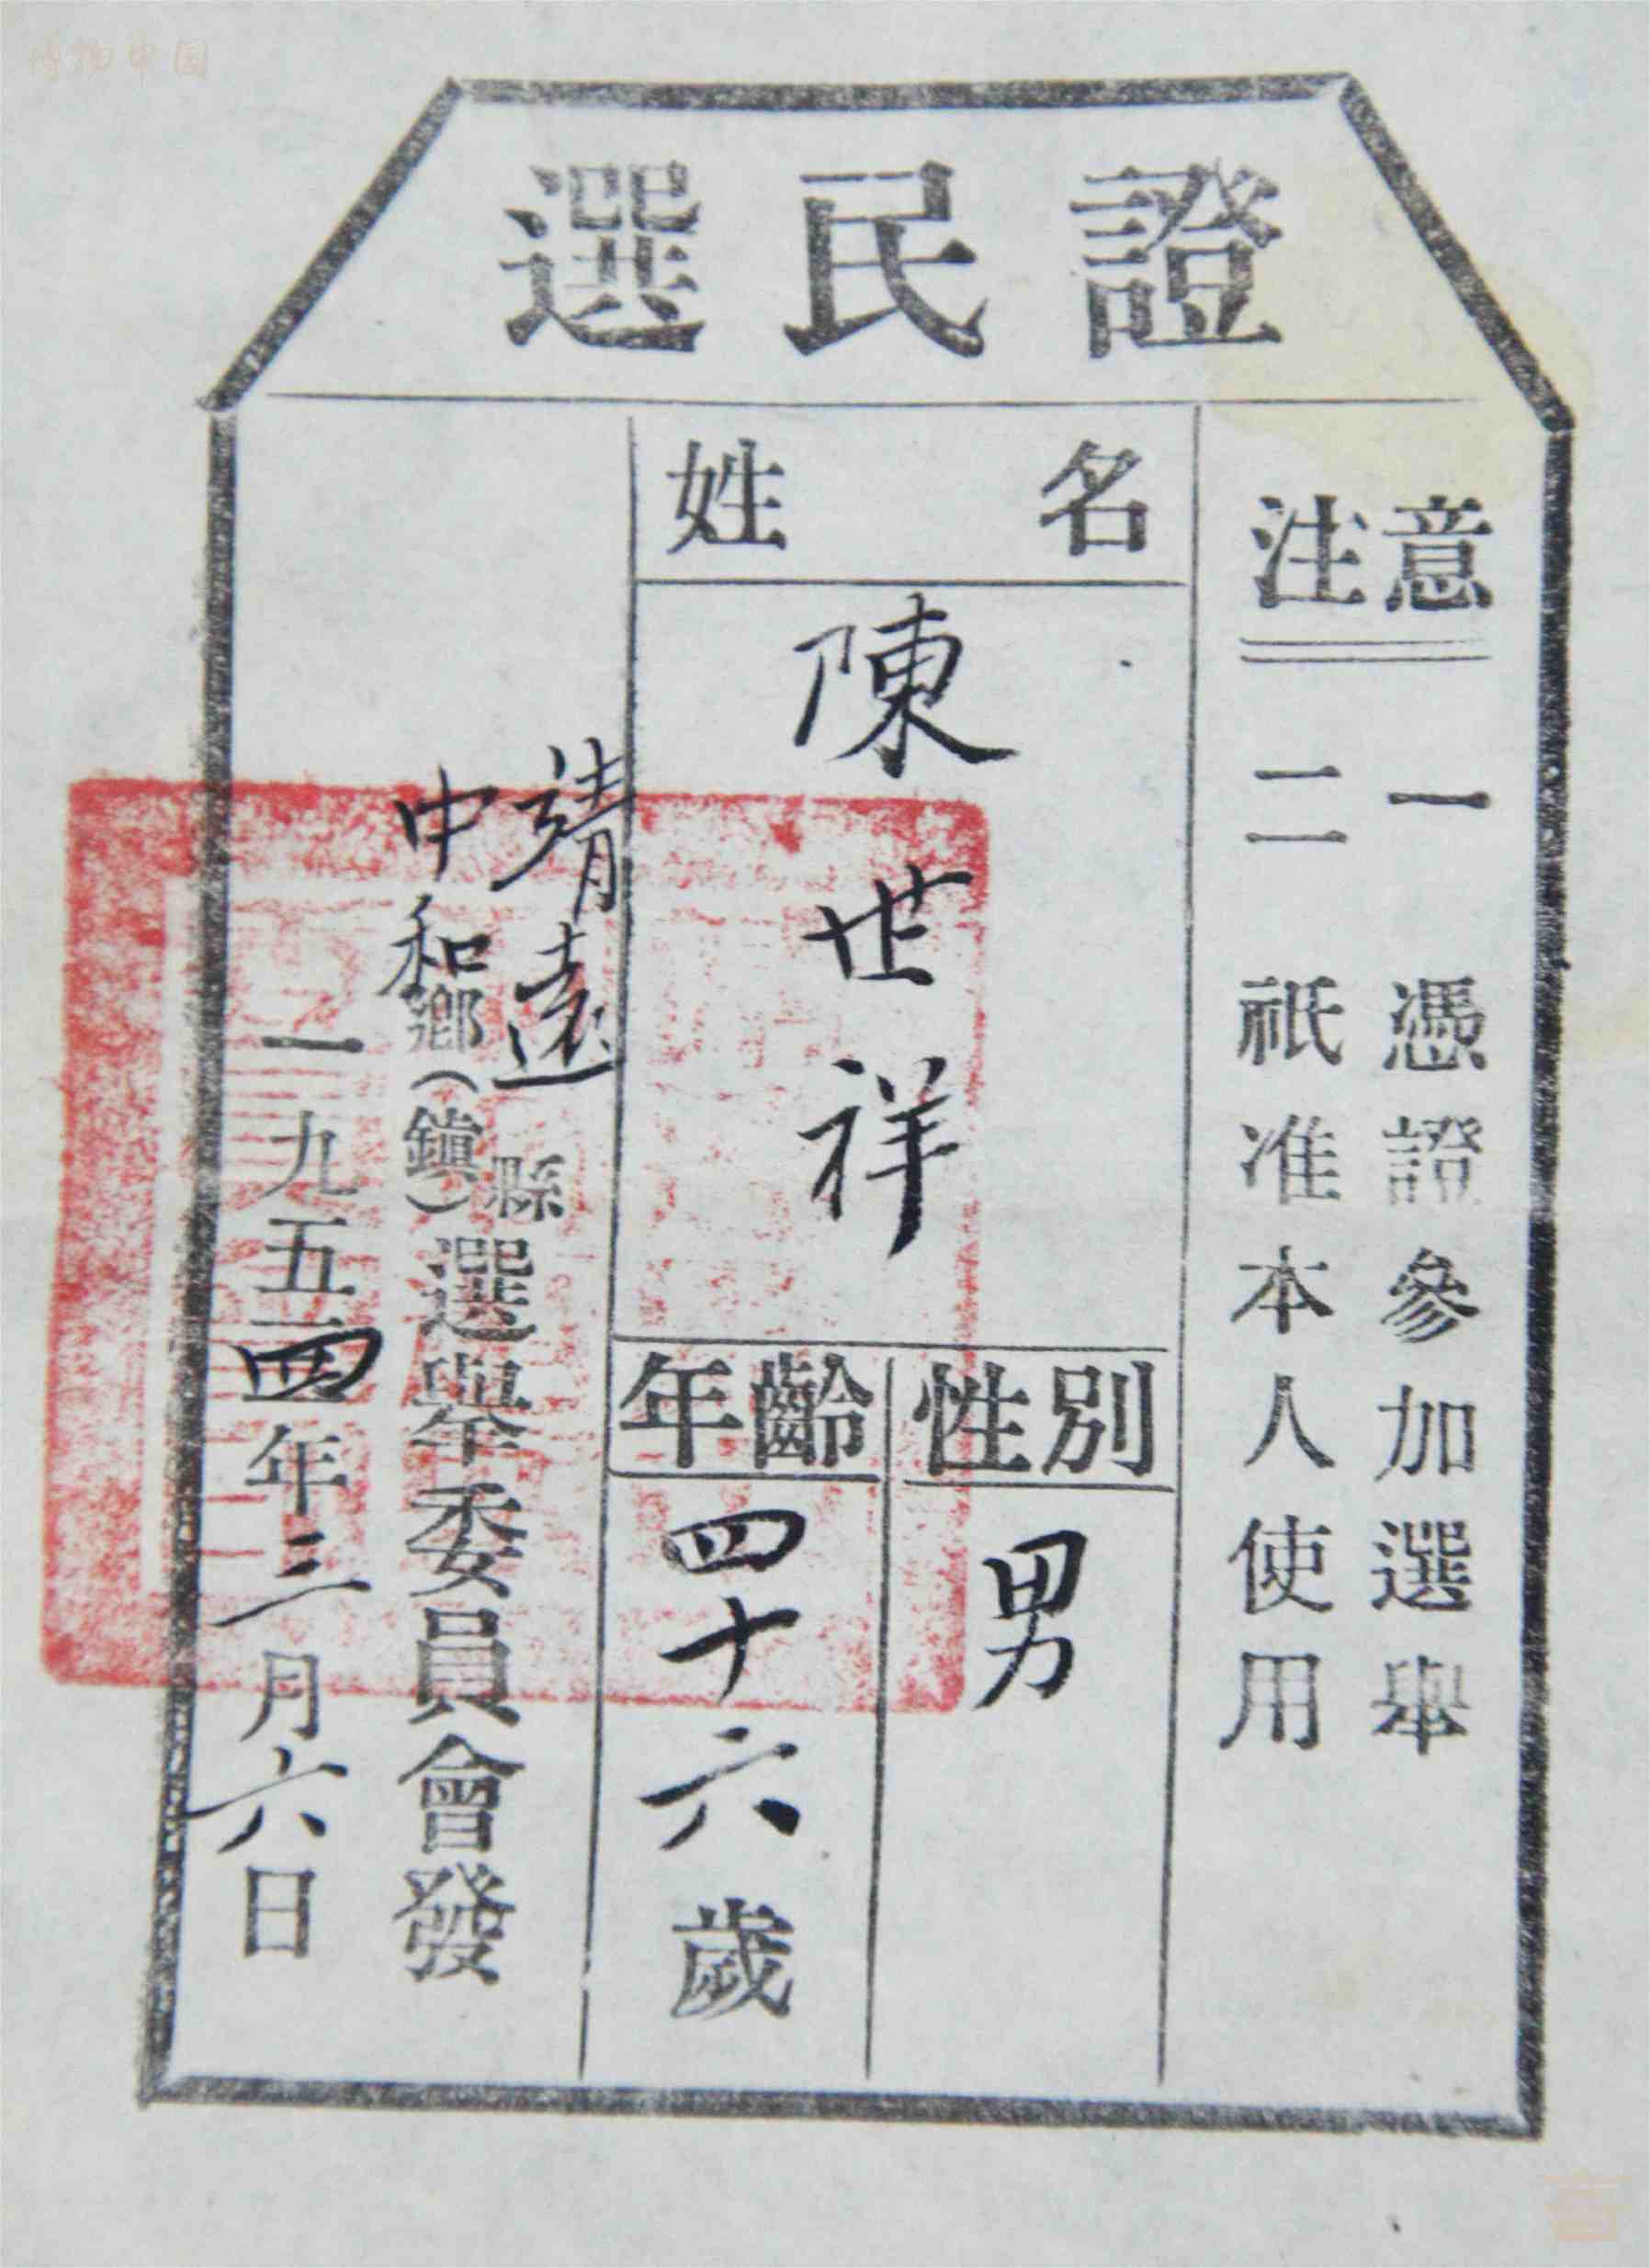 博物中国
選民證
注意
一 憑證參加選舉
二 祇准本人使用
姓名
陳世祥
性別
男
年齡
四十六歲
靖遠縣
中和鄉(鎮)選舉委員會發
一九五四年三月六日